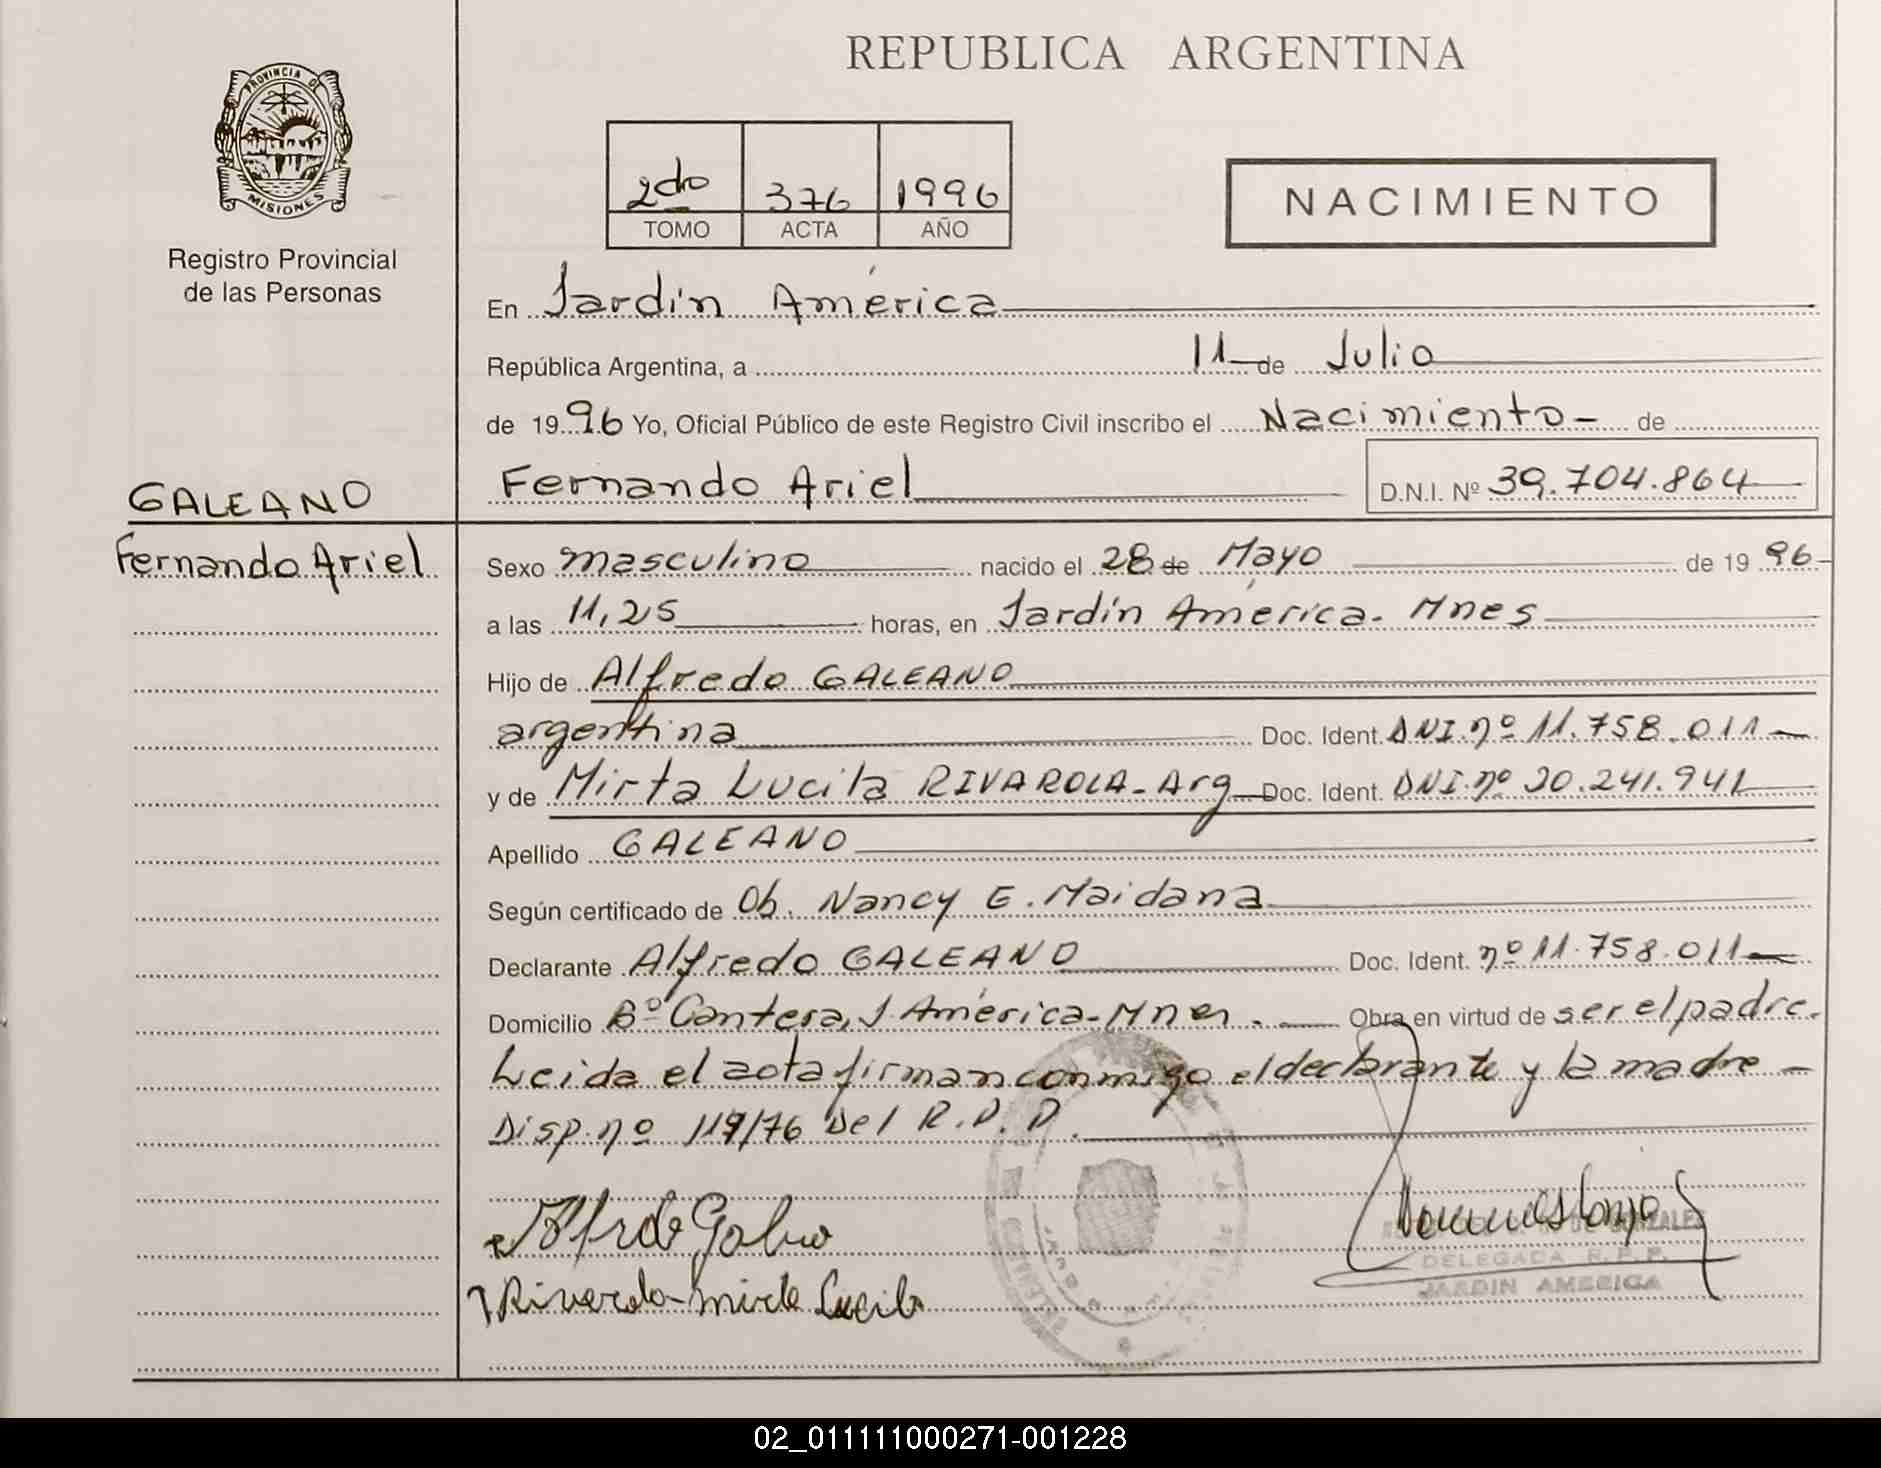 REPUBLICA ARGENTINA
PROVINCIA DE
MISIONES
Registro Provincial
de las Personas
2do 376 1996
TOMO ACTA AÑO
NACIMIENTO
En Jardín América
República Argentina, a 11 de Julio
de 1996 Yo, Oficial Público de este Registro Civil inscribo el Nacimiento - de
Fernando Ariel D.N.I. Nº 39.704.864
GALEANO
Fernando Ariel
Sexo masculino nacido el 28 de Mayo de 1996
a las 11,25 horas, en Jardín América - Mnes
Hijo de Alfredo GALEANO
argentina Doc. Ident. DNI. nº 11.758.011
y de Mirta Lucila RIVAROLA - Arg Doc. Ident. DNI. nº 20.241.941
Apellido GALEANO
Según certificado de Ob. Nancy E. Maidana
Declarante Alfredo GALEANO Doc. Ident. nº 11.758.011
Domicilio Bº Cantera, J América - Mnes. Obra en virtud de ser el padre.
Leida el acta firman conmigo el declarante y la madre -
Disp. nº 119/76 del R.P.P.
Rivarola Mirta Lucila
GONZALES
DELEGADA R.P.P.
JARDIN AMERICA
02_011111000271-001228